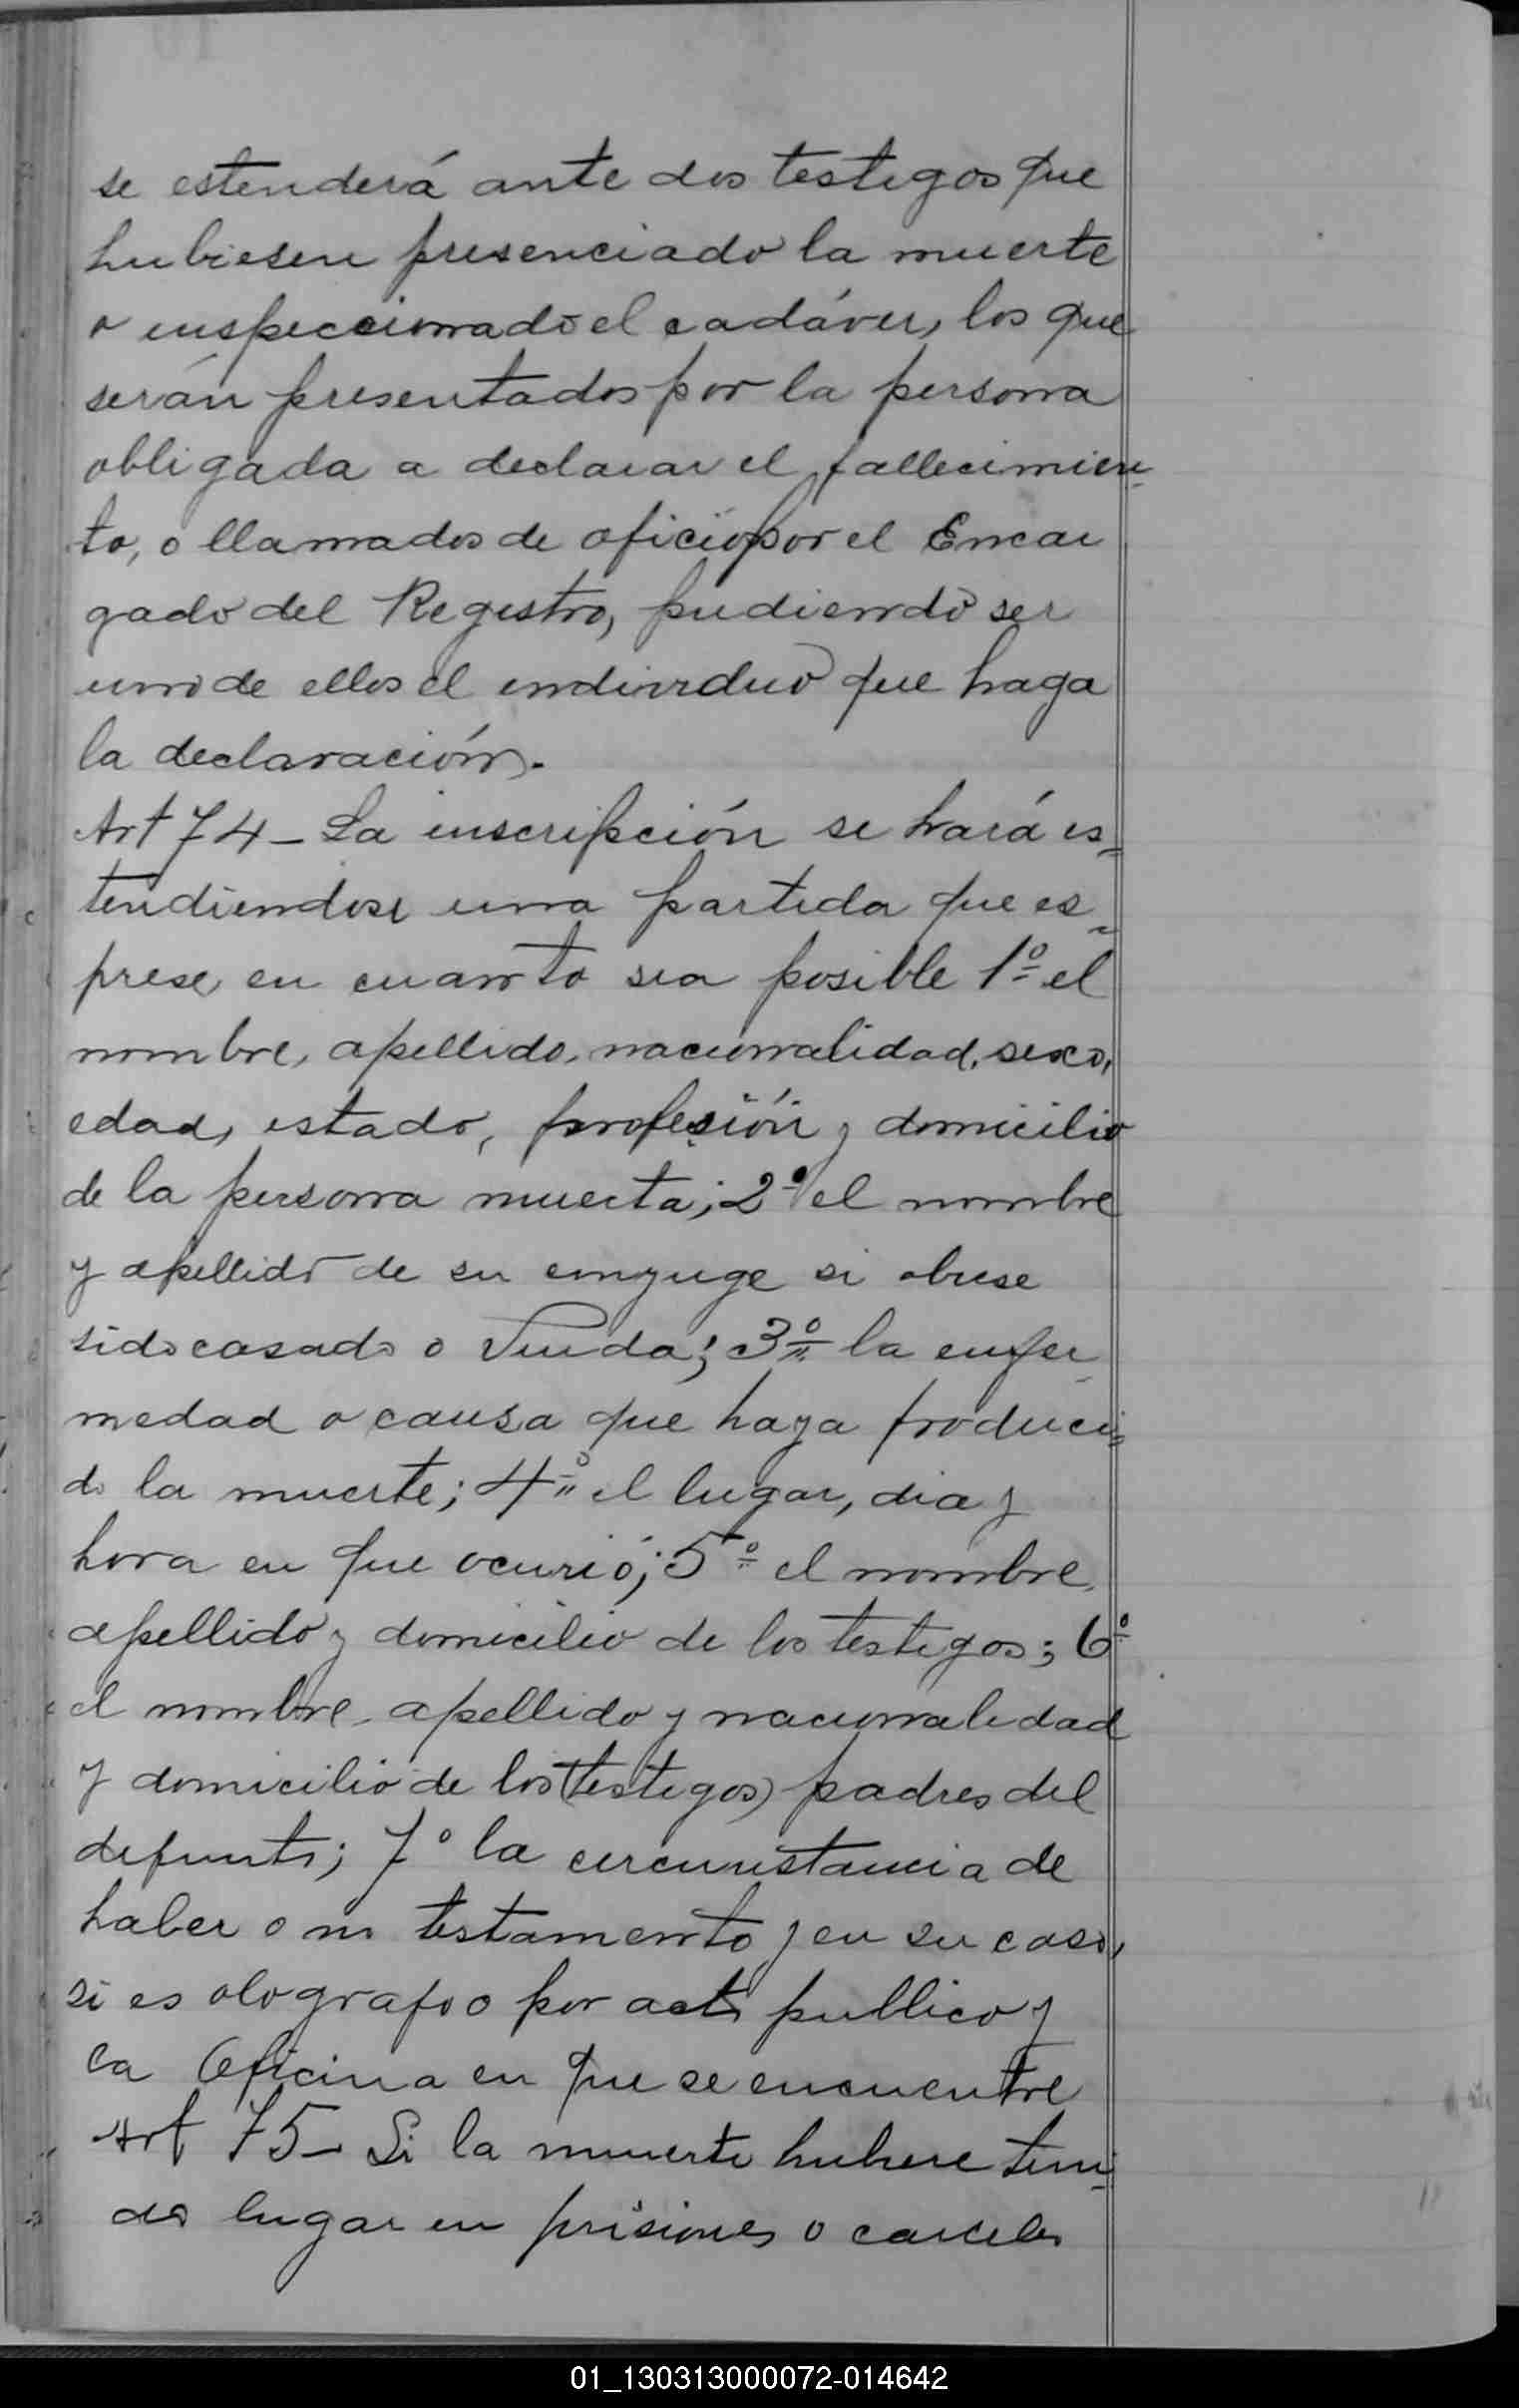 se estenderá ante dos testigos que
hubiesen presenciado la muerte
o inspeccionado el cadáver, los que
serán presentados por la persona
obligada a declarar el fallecimien-
to, o llamados de oficio por el Encar
gado del Registro, pudiendo ser
uno de ellos el individuo que haga
la declaración.
Art 74 - La inscripción se hará es=
tendiendose una partida que es=
prese, en cuanto sea posible 1º el
nombre, apellido, nacionalidad, sexo,
edad, estado, profesión y domicilio
de la persona muerta; 2º el nombre
y apellido de su conyuge si obiese
sido casado o Viuda; 3º la enfer-
medad o causa que haya produci=
do la muerte; 4º el lugar, dia y
hora en que ocurió; 5º el nombre,
apellido y domicilio de los testigos; 6º
el nombre, apellido y nacionalidad
y domicilio de los (testigos) padres del
defunto; 7º la circunstancia de
haber o no testamento y en su caso,
si es olografo o por acto publico y
la Oficina en que se encuentre
Art 75- Si la muerte hubiere teni-
do lugar en prisiones o carceles
01_130313000072-014642